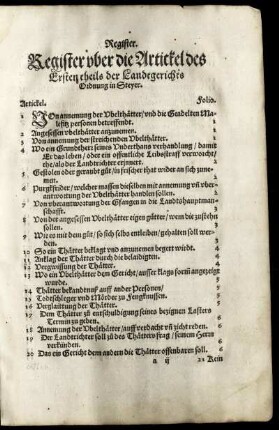 Register.
Register vber die Artickel des
Ersten theils der Landtgerichts
Ordnung in Steyer.
Artickel. Folio.
1 VOn annemung der Vbelthätter/vnd die Geadelten Ma-
lefitz personen betreffendt.
2 Angesessen vbelthätter anzunemen.
3 Von annemung der streichenden Vbelthätter.
4 Wo ein Grundtherr seines Vnderthans verhandlung / damit
Er das leben / oder ein offentliche Leibsstraff verworcht/
the/als der Landtrichter erinnert.
5 Gestolen oder geraubt gut/in frischer that wider an sich zune-
men.
6 Purgkfrider/ welcher massen dieselben mit annemung vñ vber-
antwortung der Vbelthätter handlen sollen.
7 Von vberantwortung der Gfangen in die Landtshauptman-
schafft.
8 Von der angesessen Vbelthätter eigen gütter/ wem die zustehn
sollen.
9 Wie es mit dem gut/ so sich selbs entleiben/gehalten soll wer-
den.
10 So ein Thätter beklagt vnd anzunemen begert wirdt.
11 Anklag der Thätter durch die belaidigten.
12 Vergwissung der Thätter.
13 Wo ein Vbelthätter dem Gericht/ausser klags form angezeigt
wurde.
14 Thätter bekandtnuß auff ander Personen/
15 Todtschleger vnd Mörder zu Fengknussen.
16 Verglaittung der Thätter.
17 Dem Thätter zu entschuldigung seines bezignen Lasters
Termin zu geben.
18 Annemung der Vbelthätter/auff verdacht vñ zicht reden.
19 Der Landtrichter soll zů des Thätters frag/ seinem Herrn
verkünden.
20 Das ein Gericht dem andern die Thätter offenbaren soll.
a ij 21 Kein